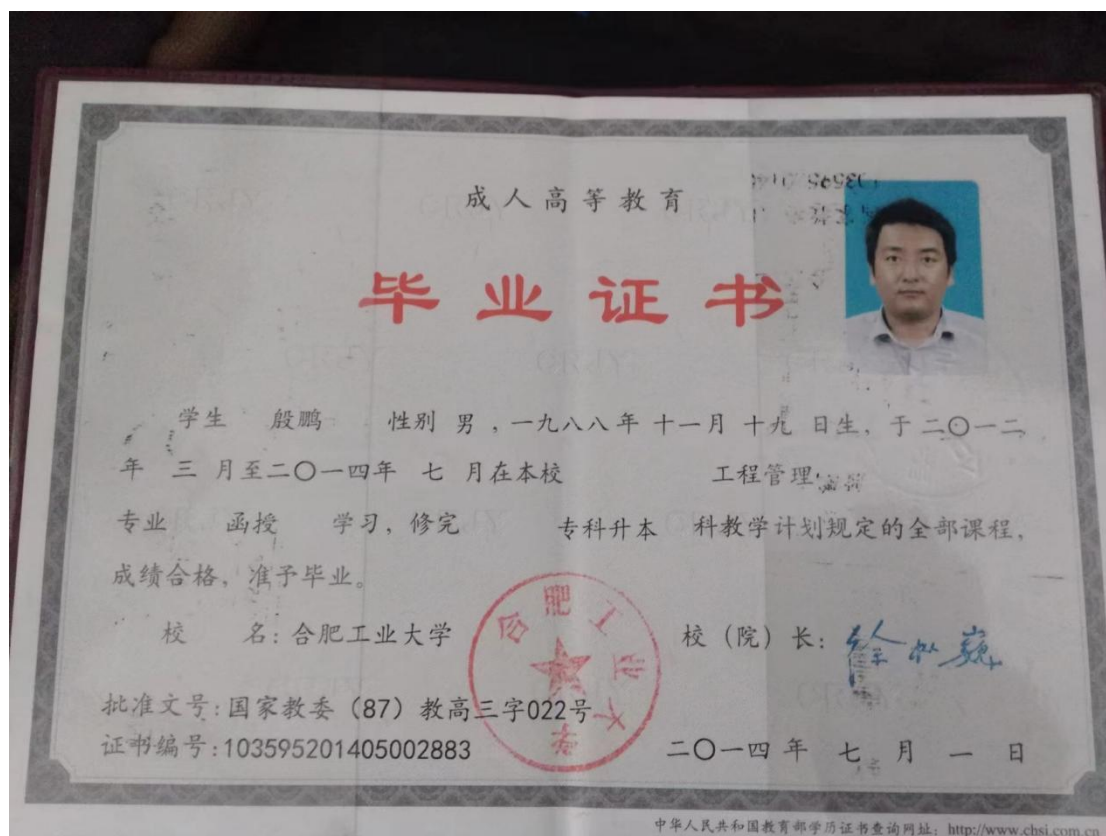 成人高等教育
毕业证书
学生 殷鹏 性别 男 ,一九八八年 十一月 十九 日生, 于二〇一二
年 三 月至二〇一四年 七 月在本校 工程管理
专业 函授 学习, 修完 专科升本 科教学计划规定的全部课程,
成绩合格, 准予毕业。
校 名: 合肥工业大学 校(院)长:
合肥工业大学
批准文号: 国家教委(87)教高三字022号
证书编号: 103595201405002883 二〇一四年 七 月 一 日
中华人民共和国教育部学历证书查询网址: http://www.chsi.com.cn